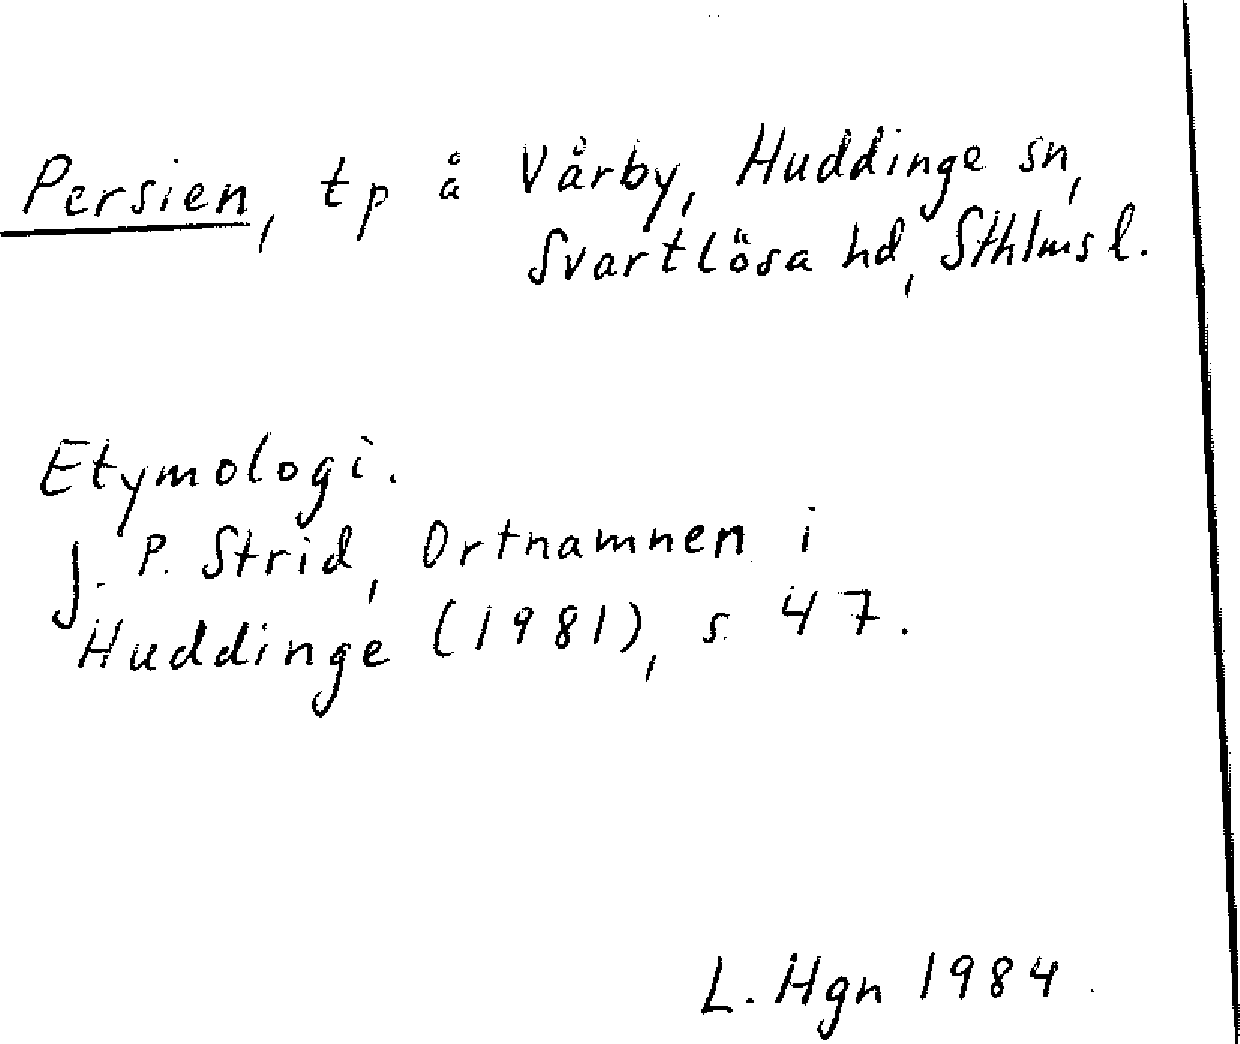 Persien, tp å Vårby, Huddinge sn,
Svartlösa hd, Sthlms l.
Etymologi.
J. P. Strid, Ortnamnen i
Huddinge (1981), s. 47.
L. Hgn 1984.